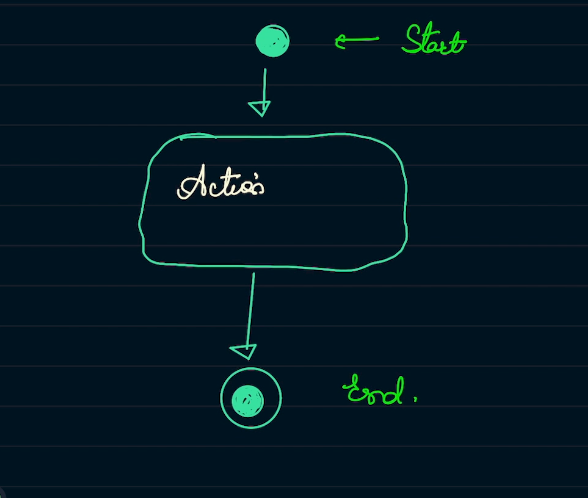 Start
Action
End.